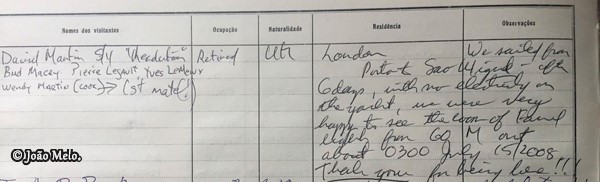 Nomes dos visitantes
Ocupação
Naturalidade
Residência
Observações
David Martin S/Y
Retired
UK
London
We sailed from
Bud Macey, Pierre Legault, Yves
Wendy Martin (cook) → (1st mate!)
Sao Miguel - after
6 days, with no electricity on
the yacht, we were very
happy to see the loom of
lights from 60 M out
about 0300 July 15/2008
Thank you for being here!!!
©João Melo.